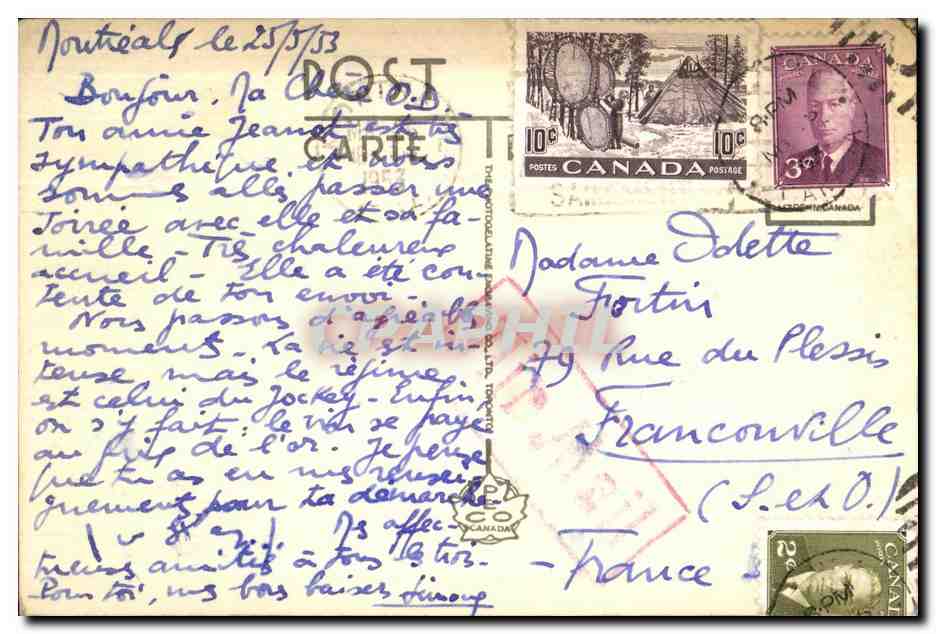 Montréal le 25/5/53
POST
CARTE
Bonjour, Ma Chère O.D.
Ton amie Jeanet est très
sympathique et nous
sommes allés passer une
soirée avec elle et sa fa-
mille - Très chaleureux
accueil - Elle a été con-
tente de ton envoi -
Nous passons d'agréables
moments - La vie est in-
tense mais le régime
est celui du Jockey - Enfin,
on s'y fait, le vin se paye
au prix de l'or. Je pense
que tu as eu mes rensei-
gnements pour ta démarche
Mes affec-
tueuses amitiés à tous les trois.
Pour toi, mes bons baisers Simone
THE PHOTOGELATINE ENGRAVING CO. LTD. TORONTO
PECO
CANADA
10c
10c
POSTES CANADA POSTAGE
CANADA
3c
PM
1953
Madame Odette
Fortin
79 Rue du Plessis
Franconville
(S. et O.)
- France -
CANADA
2c
PM
CPAPHIL